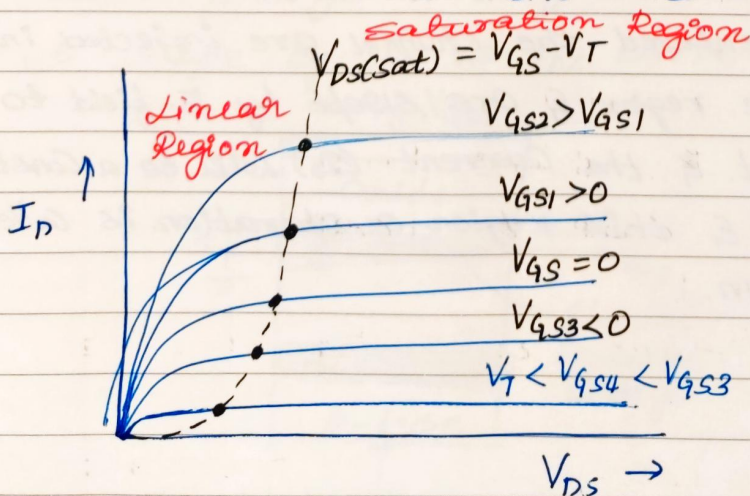 Saturation Region
V_DS(Sat) = V_GS - V_T
Linear
Region
V_GS2 > V_GS1
I_D
V_GS1 > 0
V_GS = 0
V_GS3 < 0
V_T < V_GS4 < V_GS3
V_DS →